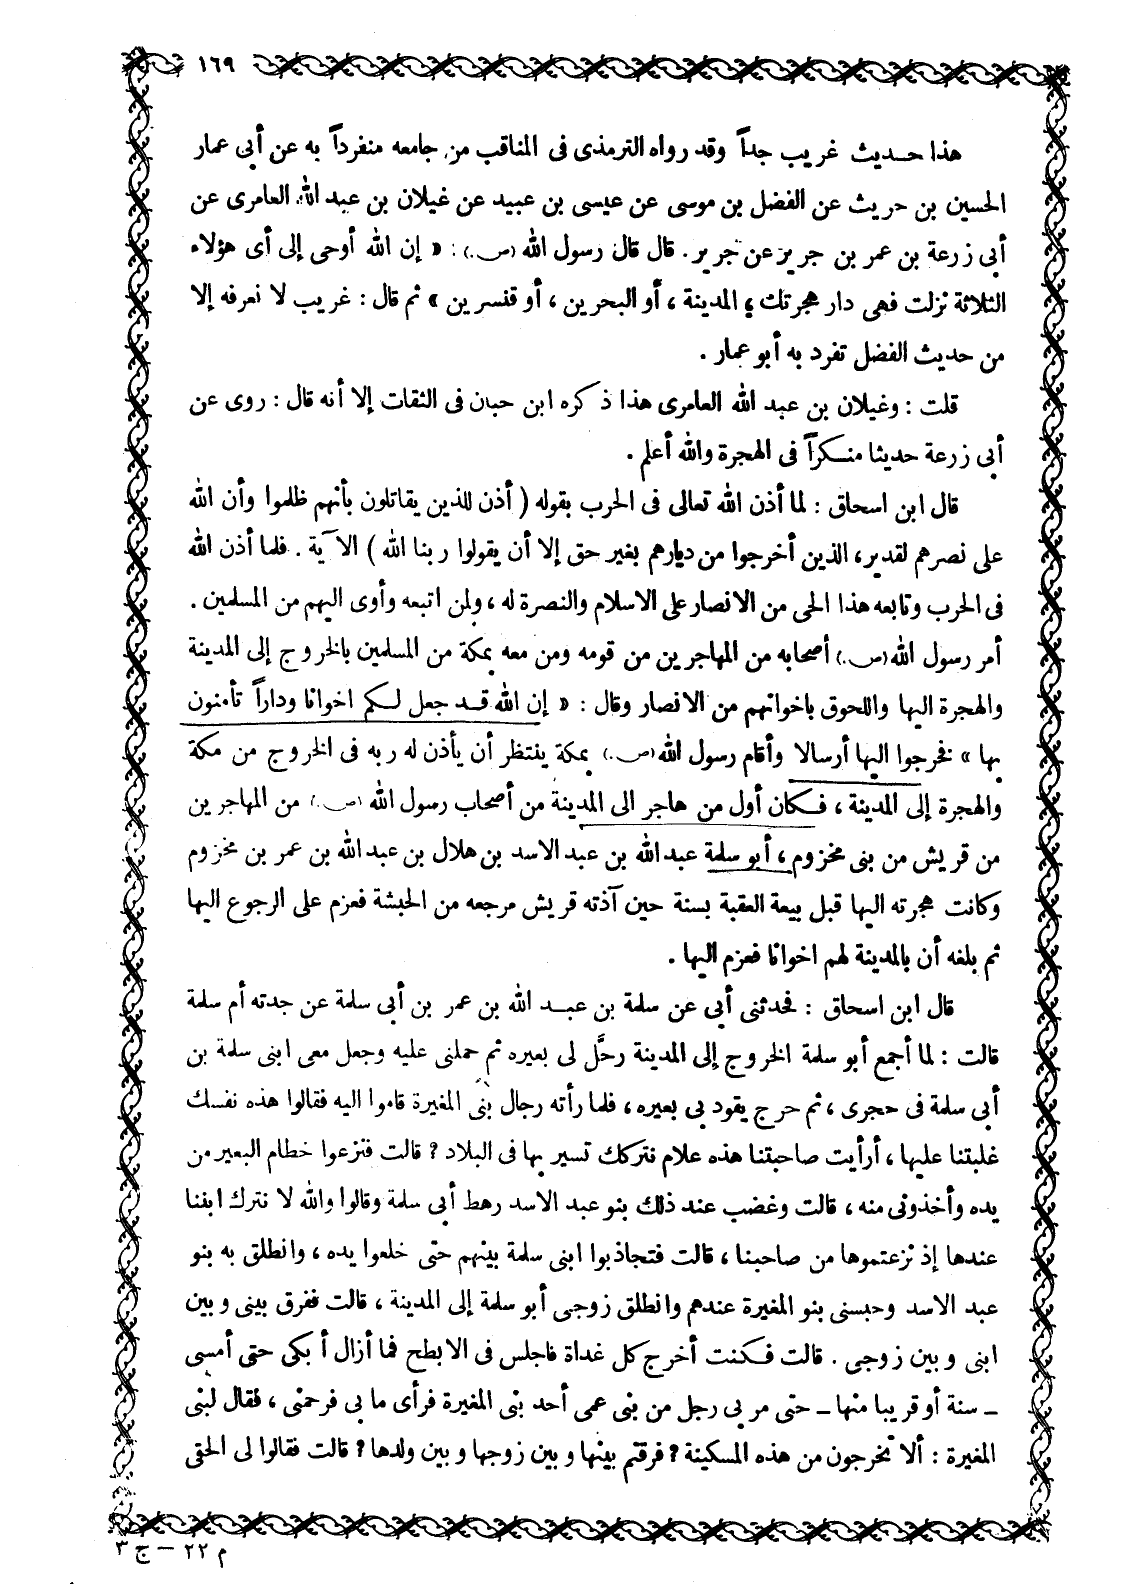 ١٦٩
هذا حديث غريب جداً وقد رواه الترمذى فى المناقب من جامعه منفرداً به عن أبى عمار
الحسين بن حريث عن الفضل بن موسى عن عيسى بن عبيد عن غيلان بن عبد الله العامرى عن
أبى زرعة بن عمر بن جرير عن جرير . قال قال رسول الله (ص.) : « إن الله أوحى إلى أى هؤلاء
الثلاثة نزلت فهى دار هجرتك ؛ المدينة ، أو البحرين ، أو قنسرين » ثم قال : غريب لا نعرفه إلا
من حديث الفضل تفرد به أبو عمار .
قلت : وغيلان بن عبد الله العامرى هذا ذكره ابن حبان فى الثقات إلا أنه قال : روى عن
أبى زرعة حديثا منكراً فى الهجرة والله أعلم .
قال ابن اسحاق : لما أذن الله تعالى فى الحرب بقوله ( أذن للذين يقاتلون بأنهم ظلموا وأن الله
على نصرهم لقدير ، الذين أخرجوا من ديارهم بغير حق إلا أن يقولوا ربنا الله ) الآية . فلما أذن الله
فى الحرب وتابعه هذا الحى من الانصار على الاسلام والنصرة له ، ولمن اتبعه وأوى اليهم من المسلمين .
أمر رسول الله (ص.) أصحابه من المهاجرين من قومه ومن معه بمكة من المسلمين بالخروج إلى المدينة
والهجرة اليها واللحوق باخوانهم من الانصار وقال : « إن الله قد جعل لكم اخوانا وداراً تأمنون
بها » فخرجوا اليها أرسالا وأقام رسول الله (ص.) بمكة ينتظر أن يأذن له ربه فى الخروج من مكة
والهجرة إلى المدينة ، فكان أول من هاجر الى المدينة من أصحاب رسول الله (ص.) من المهاجرين
من قريش من بنى مخزوم ، أبو سلمة عبد الله بن عبد الاسد بن هلال بن عبد الله بن عمر بن مخزوم
وكانت هجرته اليها قبل بيعة العقبة بسنة حين آذته قريش مرجعه من الحبشة فعزم على الرجوع اليها
ثم بلغه أن بالمدينة لهم اخوانا فعزم اليها .
قال ابن اسحاق : فحدثنى أبى عن سلمة بن عبد الله بن عمر بن أبى سلمة عن جدته أم سلمة
قالت : لما أجمع أبو سلمة الخروج إلى المدينة رحَّل لى بعيره ثم حملنى عليه وجعل معى ابنى سلمة بن
أبى سلمة فى حجرى ، ثم خرج يقود بى بعيره ، فلما رأته رجال بنى المغيرة قاموا اليه فقالوا هذه نفسك
غلبتنا عليها ، أرأيت صاحبتنا هذه علام نتركك تسير بها فى البلاد ? قالت فنزعوا خطام البعير من
يده وأخذونى منه ، قالت وغضب عند ذلك بنو عبد الاسد رهط أبى سلمة وقالوا والله لا نترك ابننا
عندها إذ نزعتموها من صاحبنا ، قالت فتجاذبوا ابنى سلمة بينهم حتى خلعوا يده ، وانطلق به بنو
عبد الاسد وحبسنى بنو المغيرة عندهم وانطلق زوجى أبو سلمة إلى المدينة ، قالت ففرق بينى وبين
ابنى وبين زوجى . قالت فكنت أخرج كل غداة فاجلس فى الابطح فما أزال أبكى حتى أمسى
ـ سنة أو قريبا منها ـ حتى مر بى رجل من بنى عمى أحد بنى المغيرة فرأى ما بى فرحمنى ، فقال لبنى
المغيرة : ألا تخرجون من هذه المسكينة ? فرقتم بينها وبين زوجها وبين ولدها ? قالت فقالوا لى الحقى
م ٢٢ ـ ج ٣